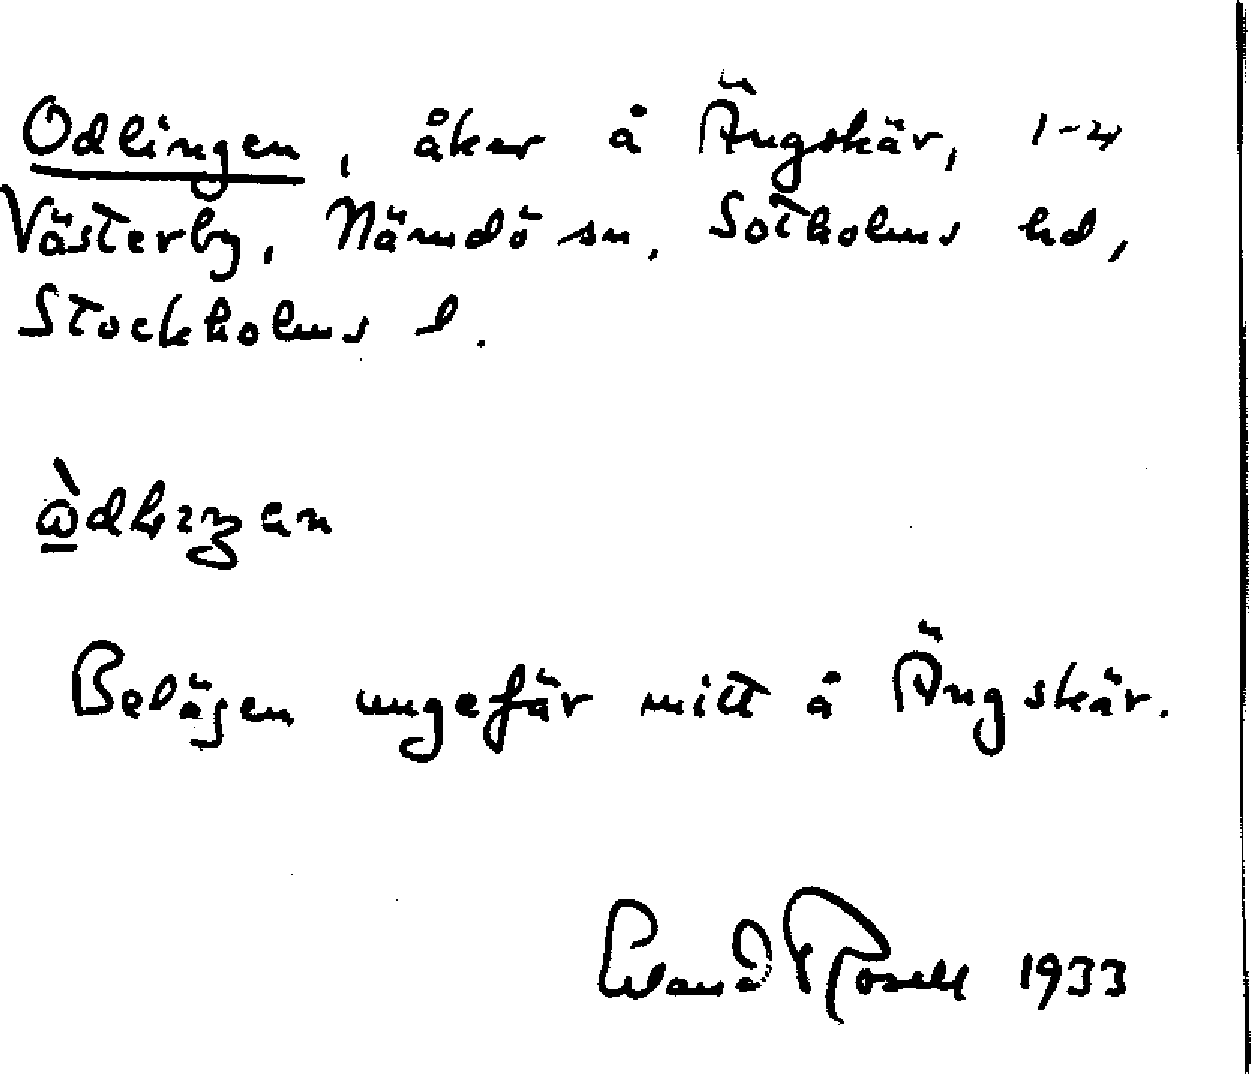 Odlingen, åker å Ängskär, 1-4
Västerby, Nämdö sn, Sotholms hd,
Stockholms l.
Belägen ungefär mitt å Ängskär.
Rosell 1933